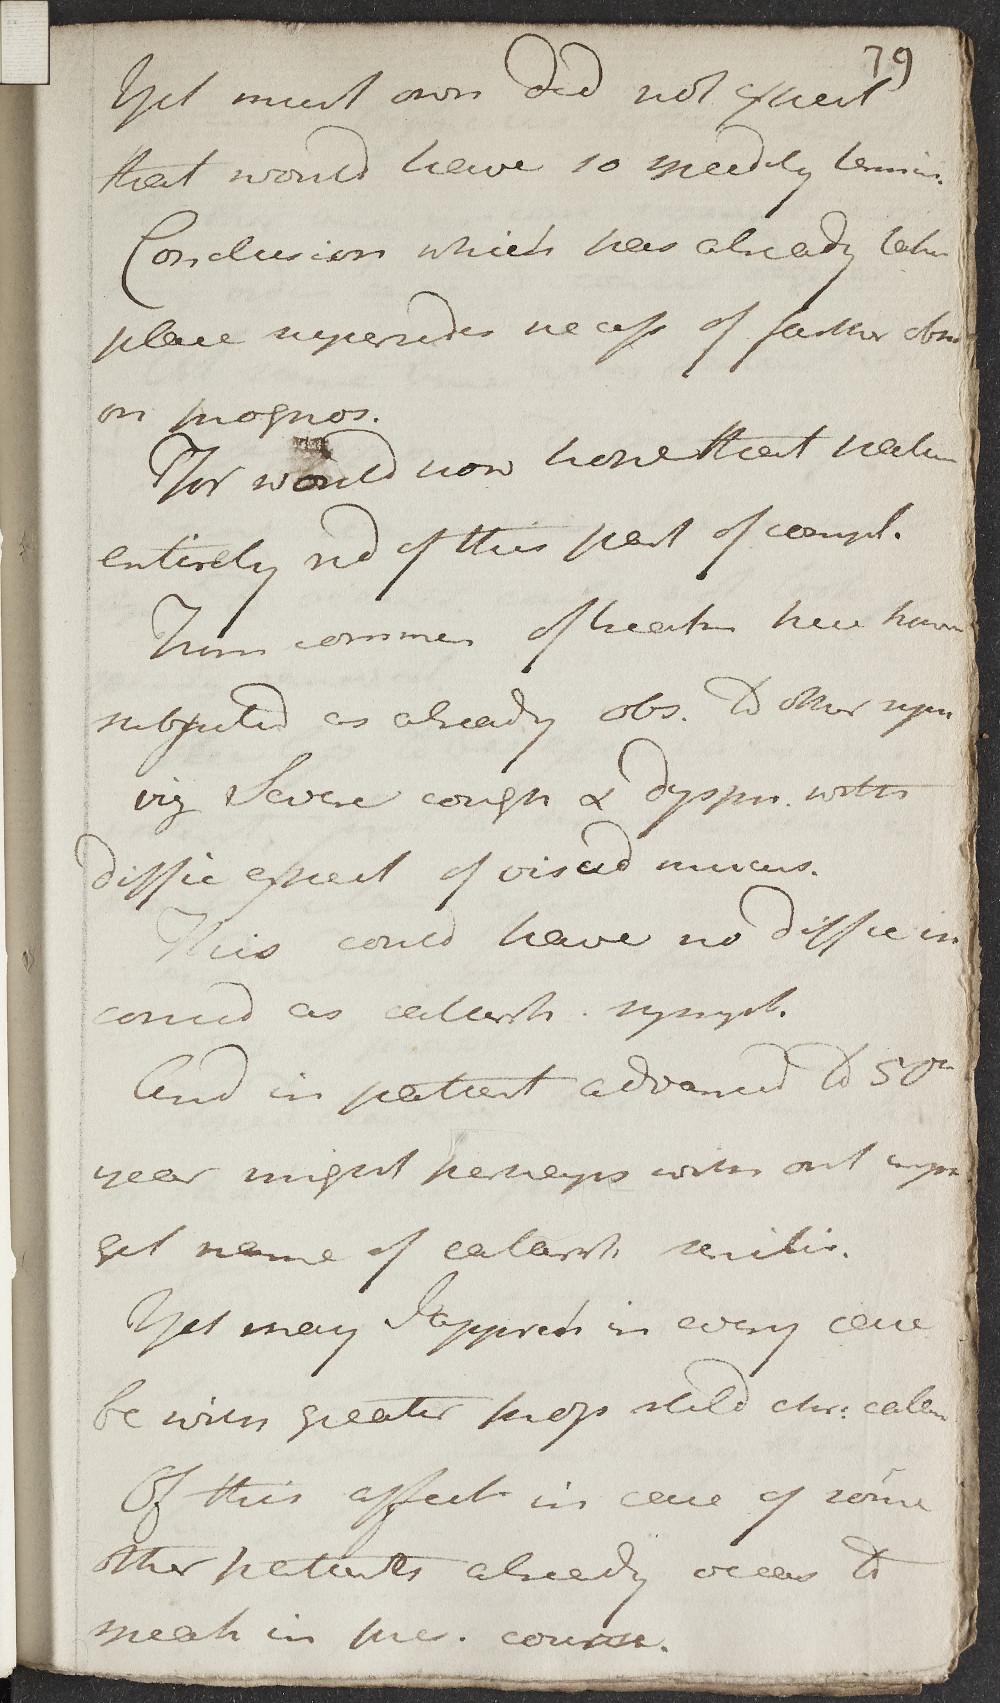 79
Yet must own did not expect
that would have so speedily termin.
Conclusion which has already taken
place supersedes necess of farther obs
on prognos.
For would now hope that patien
entirely rid of this part of compl.
From commen of treatm here howev
subjected as already obs. to other sym
viz Severe cough & dyspn. with
diffic expect of viscid mucus.
This could have no diffic in
consid as catarrh. sympt.
And in patient advanced to 50th
year might perhaps with out impr
get name of catarrh senilis.
Yet may I appreh in every case
be with greater prop stiled chr: catarr
Of this affect in case of some
other patients already occas to
speak in pres. course.